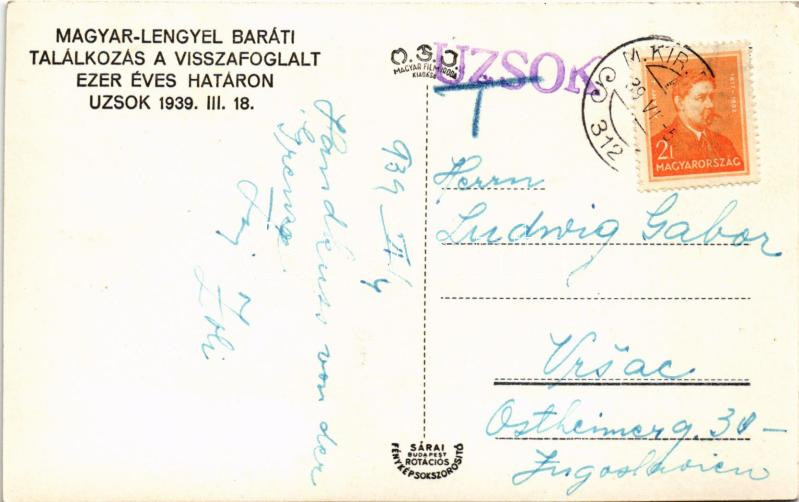 MAGYAR-LENGYEL BARÁTI
TALÁLKOZÁS A VISSZAFOGLALT
EZER ÉVES HATÁRON
UZSOK 1939. III. 18.
O.S.O.
MAGYAR FILM IRODA
KIADÁSA
UZSOK
T
M. KIR.
39 VI
312
2f
MAGYARORSZÁG
939 VI/4
Handkuss von der
Grenze
Zoli
Herrn
Ludwig Gabor
Vršac
Ostheimerg. 30-
Jugoslavien
SÁRAI
BUDAPEST
ROTÁCIÓS
FÉNYKÉPSOKSZOROSITÓ